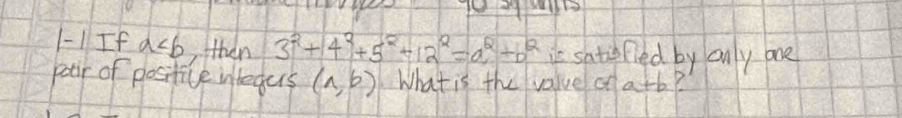 90 sq units
1-1 If a<b, then 3² + 4² + 5² + 12² = a² + b² is satisfied by only one
pair of positive integers (a, b). What is the value of a+b?